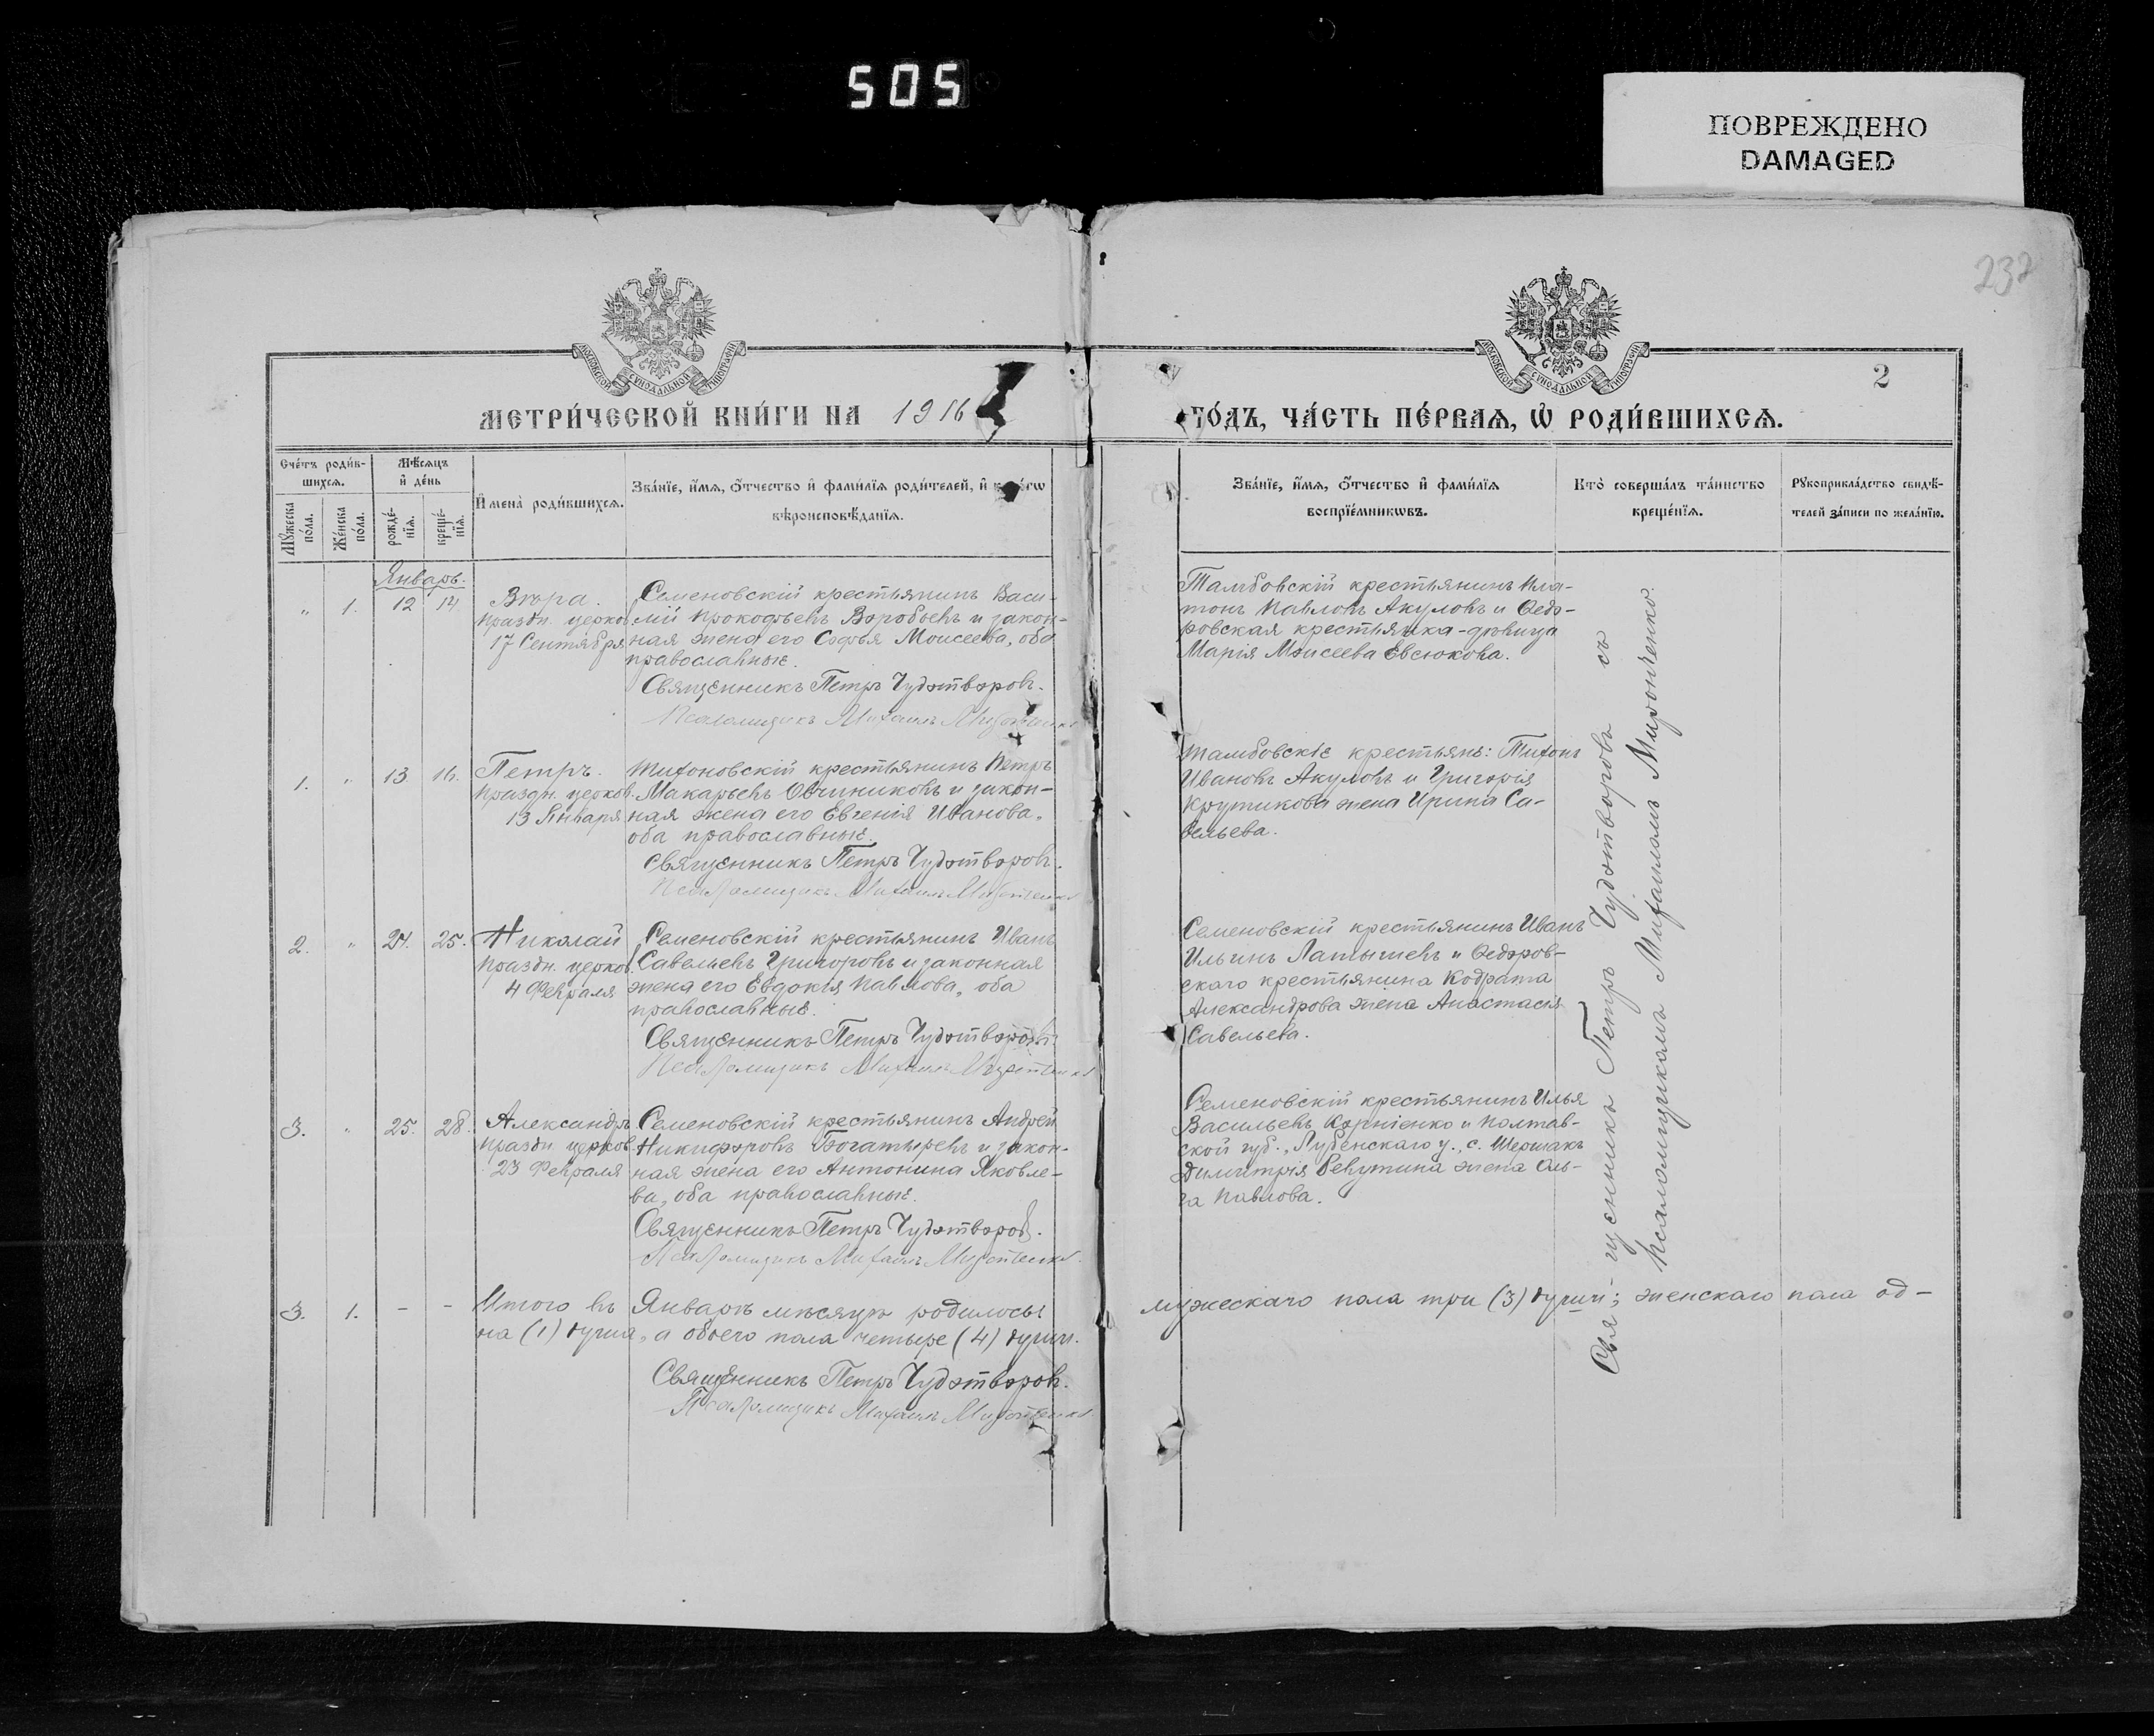 505
ПОВРЕЖДЕНО
DAMAGED
МОСКОВСКОЙ СУНОДАЛЬНОЙ ТИПОГРАФІИ
МОСКОВСКОЙ СУНОДАЛЬНОЙ ТИПОГРАФІИ
2
МЕТРИ́ЧЕСКОЙ КНИ́ГИ НА 1916
ГО́ДЪ, ЧА́СТЬ ПЕ́РВАѦ, Ѡ҆ РОДИ́ВШИХСѦ.
Сче́тъ роди́в-
шихсѧ.
Мꙋ́жеска по́ла.
Же́нска по́ла.
Мѣ́сяцъ
и҆ де́нь
рожде́-
нїѧ.
креще́-
нїѧ.
И҆мена̀ роди́вшихсѧ.
Зва́нїе, и҆́мѧ, ѻ҆́тчество и҆ фами́лїѧ роди́телей, и҆
вѣроисповѣ́данїѧ.
Зва́нїе, и҆́мѧ, ѻ҆́тчество и҆ фами́лїѧ
воспрїе́мникѡвъ.
Кто̀ соверша́лъ та́инство
креще́нїѧ.
Рꙋкоприкла́дство свидѣ́-
телей за́писи по жела́нїю.
Январь.
„ 1. 12 14
Вѣра.
праздн. церков.
17 Сентября
Семеновскій крестьянинъ Васи-
лій Прокофьевъ Воробьевъ и закон-
ная жена его Софья Моисеева, оба
православные.
Священникъ Петръ Чудотворовъ.
Псаломщикъ Михаилъ Миронченко
Тамбовскій крестьянинъ Пла-
тонъ Павловъ Акуловъ и Ѳедо-
ровская крестьянка-дѣвица
Марія Моисеева Евсюкова.
1. „ 13 16.
Петръ.
праздн. церков.
13 Января
Тихоновскій крестьянинъ Петръ
Макарьевъ Овчиниковъ и закон-
ная жена его Евгенія Иванова,
оба православные.
Священникъ Петръ Чудотворовъ.
Псаломщикъ Михаилъ Миронченко
Тамбовскіе крестьяне: Тихонъ
Ивановъ Акуловъ и Григорія
Крутикова жена Ирина Са-
вельева.
2. „ 24. 25.
Николай
праздн. церков.
4 Февраля
Семеновскій крестьянинъ Иванъ
Савельевъ Григоровъ и законная
жена его Евдокія Павлова, оба
православные.
Священникъ Петръ Чудотворовъ.
Псаломщикъ Михаилъ Миронченко
Семеновскій крестьянинъ Иванъ
Ильинъ Латышевъ и Ѳедоров-
скаго крестьянина Кодрата
Александрова жена Анастасія
Савельева.
3. „ 25. 28.
Александръ
праздн церков.
23 Февраля
Семеновскій крестьянинъ Андрей
Никифоровъ Богатыревъ и закон-
ная жена его Антонина Яковле-
ва, оба православные.
Священникъ Петръ Чудотворовъ.
Псаломщикъ Михаилъ Миронченко
Семеновскій крестьянинъ Илья
Васильевъ Корніенко и Полтав-
ской губ., Лубенскаго у., с.
Димитрія жена Оль-
га Павлова.
Священникъ Петръ Чудотворовъ съ
псаломщикомъ Михаиломъ Миронченко.
3. 1. - -
Итого въ Январѣ мѣсяцѣ родилось: мужескаго пола три (3) души; женскаго пола од-
на (1) душа, а обоего пола четыре (4) души.
Священникъ Петръ Чудотворовъ.
Псаломщикъ Михаилъ Миронченко